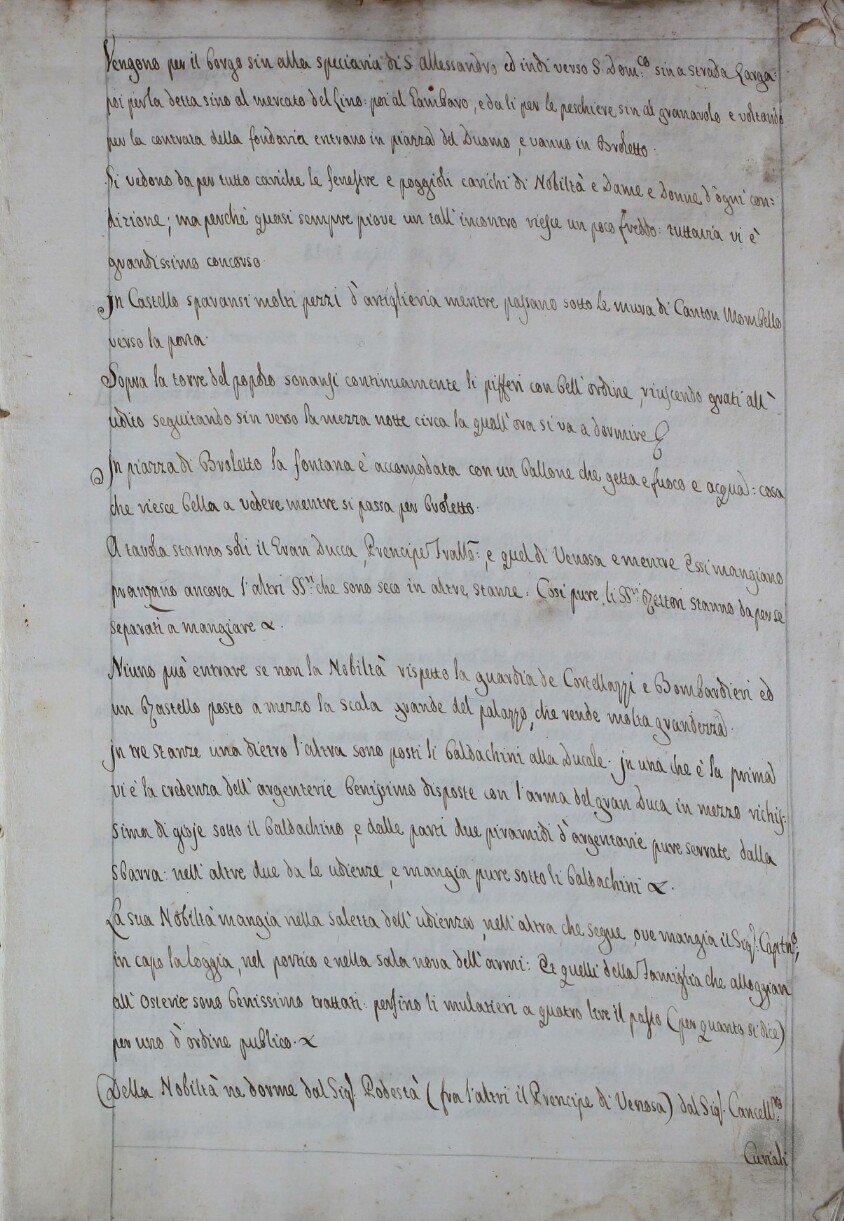 Vengono per il borgo sin alla speciaria di S allessandro ed indi verso S. Dom.co sin a strada larga:
poi per la detta sino al mercato del lino: poi al Gambaro, e da li per le peschiere sin al granarolo e voltando
per la contrata della fondaria entrano in piazza del Duomo, e vanno in Broletto.
Si vedono da per tutto cariche le fenestre e poggioli carichi di Nobiltà e Dame e Donne d'ogni con:
dizione; ma perchè quasi sempre piove un tall'incontro riesce un poco freddo: tuttavia vi è
grandissimo concorso.
In Castello sparansi molti pezzi d'artiglieria mentre passano sotto le mura di Canton Mombello
verso la porta.
Sopra la torre del popolo sonansi continuamente li pifferi con bell'ordine, riuscendo grati all'
udito seguitando sin verso la mezza notte circa la quall'ora si va a dormire
In piazza di Broletto la fontana è accomodata con un ballone che getta e fuoco e acqua: cosa
che riesce bella a vedere mentre si passa per broletto.
A tavola stanno soli il Gran Ducca, Prencipe e quel di Venosa e mentre Essi mangiano
pranzano ancora l'altri SS.ri che sono seco in altre stanze. Cosi pure li SS.ri Rettori stanno da per se
separati a mangiare &.
Niuno può entrare se non la Nobiltà rispetto la guardia de Cortellazzi e Bombardieri ed
un Rastello posto a mezzo la scala grande del palazzo, che rende molta grandezza.
In tre stanze una dietro l'altra sono posti li baldachini alla Ducale. In una che è la prima
vi è la credenza dell'argenterie benissimo disposte con l'arma del gran Duca in mezzo richis-
sima di gioje sotto il baldachino, e dalle parti due piramidi d'argentarie pure serrate dalla
sbarra: nell'altre due da le udienze, e mangia pure sotto li baldachini &.
La sua Nobiltà mangia nella saletta dell'udienza, nell'altra che segue, ove mangia il Sig.r Captno,
in capo la loggia, nel portico e nella sala nova dell'armi: Et quelli della Famiglia che alloggian
all'Osterie sono benissimo trattati: persino li mulatieri a quatro lire il pasto (per quanto si dice)
per uno d'ordine publico. &
Della Nobiltà ne dorme dal Sig.r Podestà (fra l'altri il Prencipe di Venosa) dal Sig.r Cancell.ro
Curiali